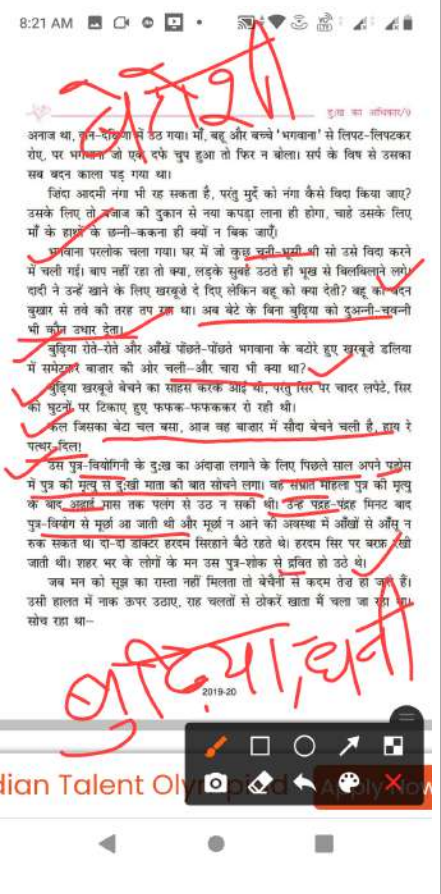 8:21 AM
दुःख का अधिकार/9
अनाज था, दान-दक्षिणा में उठ गया। माँ, बहू और बच्चे 'भगवाना' से लिपट-लिपटकर
रोए, पर भगवाना जो एक दफे चुप हुआ तो फिर न बोला। सर्प के विष से उसका
सब बदन काला पड़ गया था।
ज़िंदा आदमी नंगा भी रह सकता है, परंतु मुर्दे को नंगा कैसे विदा किया जाए?
उसके लिए तो बजाज की दुकान से नया कपड़ा लाना ही होगा, चाहे उसके लिए
माँ के हाथों के छन्नी-ककना ही क्यों न बिक जाएँ।
भगवाना परलोक चला गया। घर में जो कुछ चूनी-भूसी थी सो उसे विदा करने
में चली गई। बाप नहीं रहा तो क्या, लड़के सुबह उठते ही भूख से बिलबिलाने लगे।
दादी ने उन्हें खाने के लिए खरबूजे दे दिए लेकिन बहू को क्या देती? बहू का बदन
बुखार से तवे की तरह तप रहा था। अब बेटे के बिना बुढ़िया को दुअन्नी-चवन्नी
भी कौन उधार देता।
बुढ़िया रोते-रोते और आँखें पोंछते-पोंछते भगवाना के बटोरे हुए खरबूजे डलिया
में समेटकर बाज़ार की ओर चली—और चारा भी क्या था?
बुढ़िया खरबूजे बेचने का साहस करके आई थी, परंतु सिर पर चादर लपेटे, सिर
को घुटनों पर टिकाए हुए फफक-फफककर रो रही थी।
कल जिसका बेटा चल बसा, आज वह बाजार में सौदा बेचने चली है, हाय रे
पत्थर-दिल!
उस पुत्र-वियोगिनी के दुःख का अंदाज़ा लगाने के लिए पिछले साल अपने पड़ोस
में पुत्र की मृत्यु से दुःखी माता की बात सोचने लगा। वह संभ्रांत महिला पुत्र की मृत्यु
के बाद अढ़ाई मास तक पलंग से उठ न सकी थी। उन्हें पंद्रह-पंद्रह मिनट बाद
पुत्र-वियोग से मूर्छा आ जाती थी और मूर्छा न आने की अवस्था में आँखों से आँसू न
रुक सकते थे। दो-दो डॉक्टर हरदम सिरहाने बैठे रहते थे। हरदम सिर पर बरफ़ रखी
जाती थी। शहर भर के लोगों के मन उस पुत्र-शोक से द्रवित हो उठे थे।
जब मन को सूझ का रास्ता नहीं मिलता तो बेचैनी से कदम तेज़ हो जाते हैं।
उसी हालत में नाक ऊपर उठाए, राह चलतों से ठोकरें खाता मैं चला जा रहा था।
सोच रहा था—
बुढ़िया, धनी
2019-20
dian Talent Olympied
Apply Now